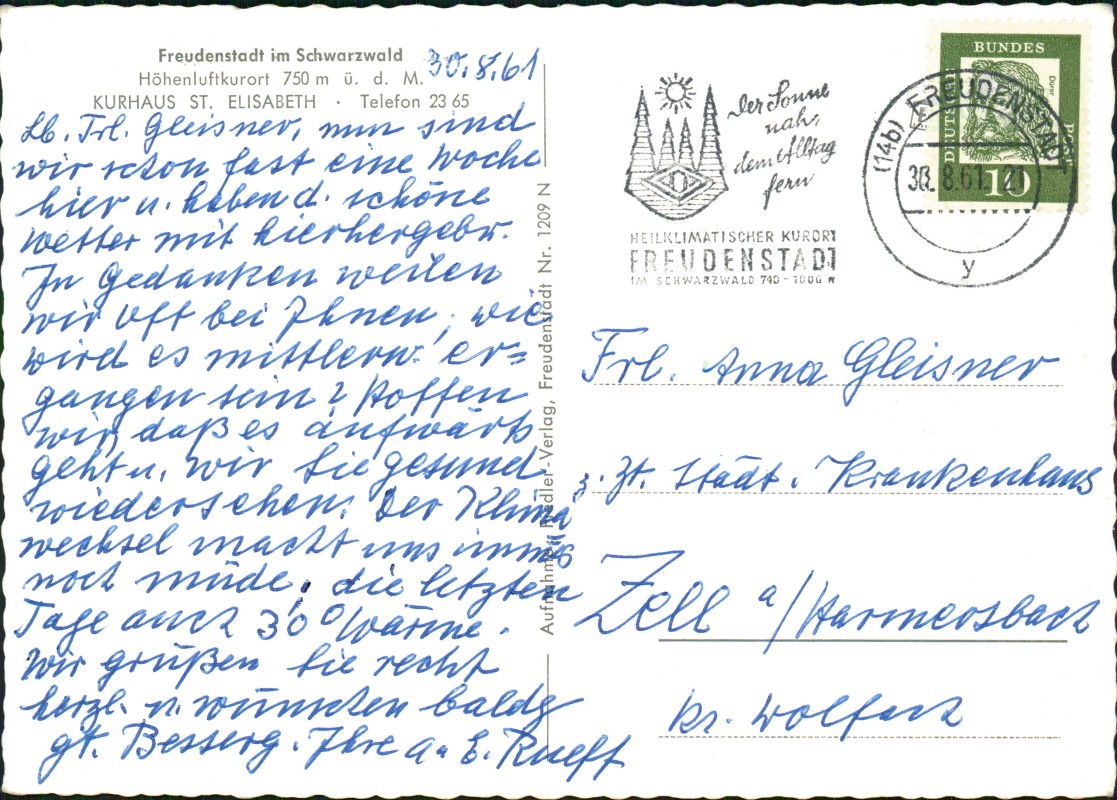 Freudenstadt im Schwarzwald
Höhenluftkurort 750 m ü. d. M.
KURHAUS ST. ELISABETH · Telefon 23 65
30.8.61
Lb. Frl. Gleisner, nun sind
wir schon fast eine Woche
hier u. haben d. schöne
Wetter mit hierhergebr.
In Gedanken weilen
wir oft bei Ihnen, wie
wird es mittlerw. er=
gangen sein? Hoffen
wir, daß es aufwärts
geht u. wir Sie gesund
wiedersehen. Der Klima
wechsel macht uns immer
noch müde, die letzten
Tage auch 30° Wärme.
Wir grüßen Sie recht
herzl. u. wünschen baldg
gt. Besserg. Ihre A. u. E. Rueff
Aufnahme Riedler-Verlag, Freudenstadt Nr. 1209 N
Der Sonne
nah,
dem Alltag
fern
HEILKLIMATISCHER KURORT
FREUDENSTADT
IM SCHWARZWALD 740-1000 M
(14b) FREUDENSTADT
30.8.61.-21
y
DEUTSCHE
BUNDES
POST
Dürer
10
Frl. Anna Gleisner
z. Zt. Städt. Krankenhaus
Zell a/Harmersbach
Kr. Wolfach